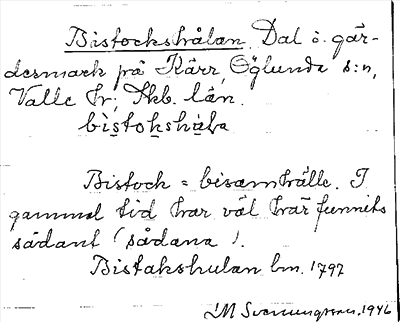 Bistockshålan. Dal å går-
desmark på Kärr, Öglunda s:n,
Valle hd; Skb. län.
bistokshåla
Bistock = bisamhälle. I
gammal tid har väl här funnits
sådant (sådana).
Bistakshulan lm. 1797
LM Svenungsson. 1946